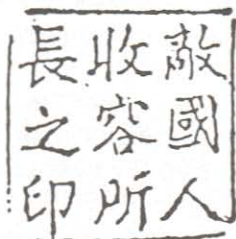 敵國人
收容所
長之印